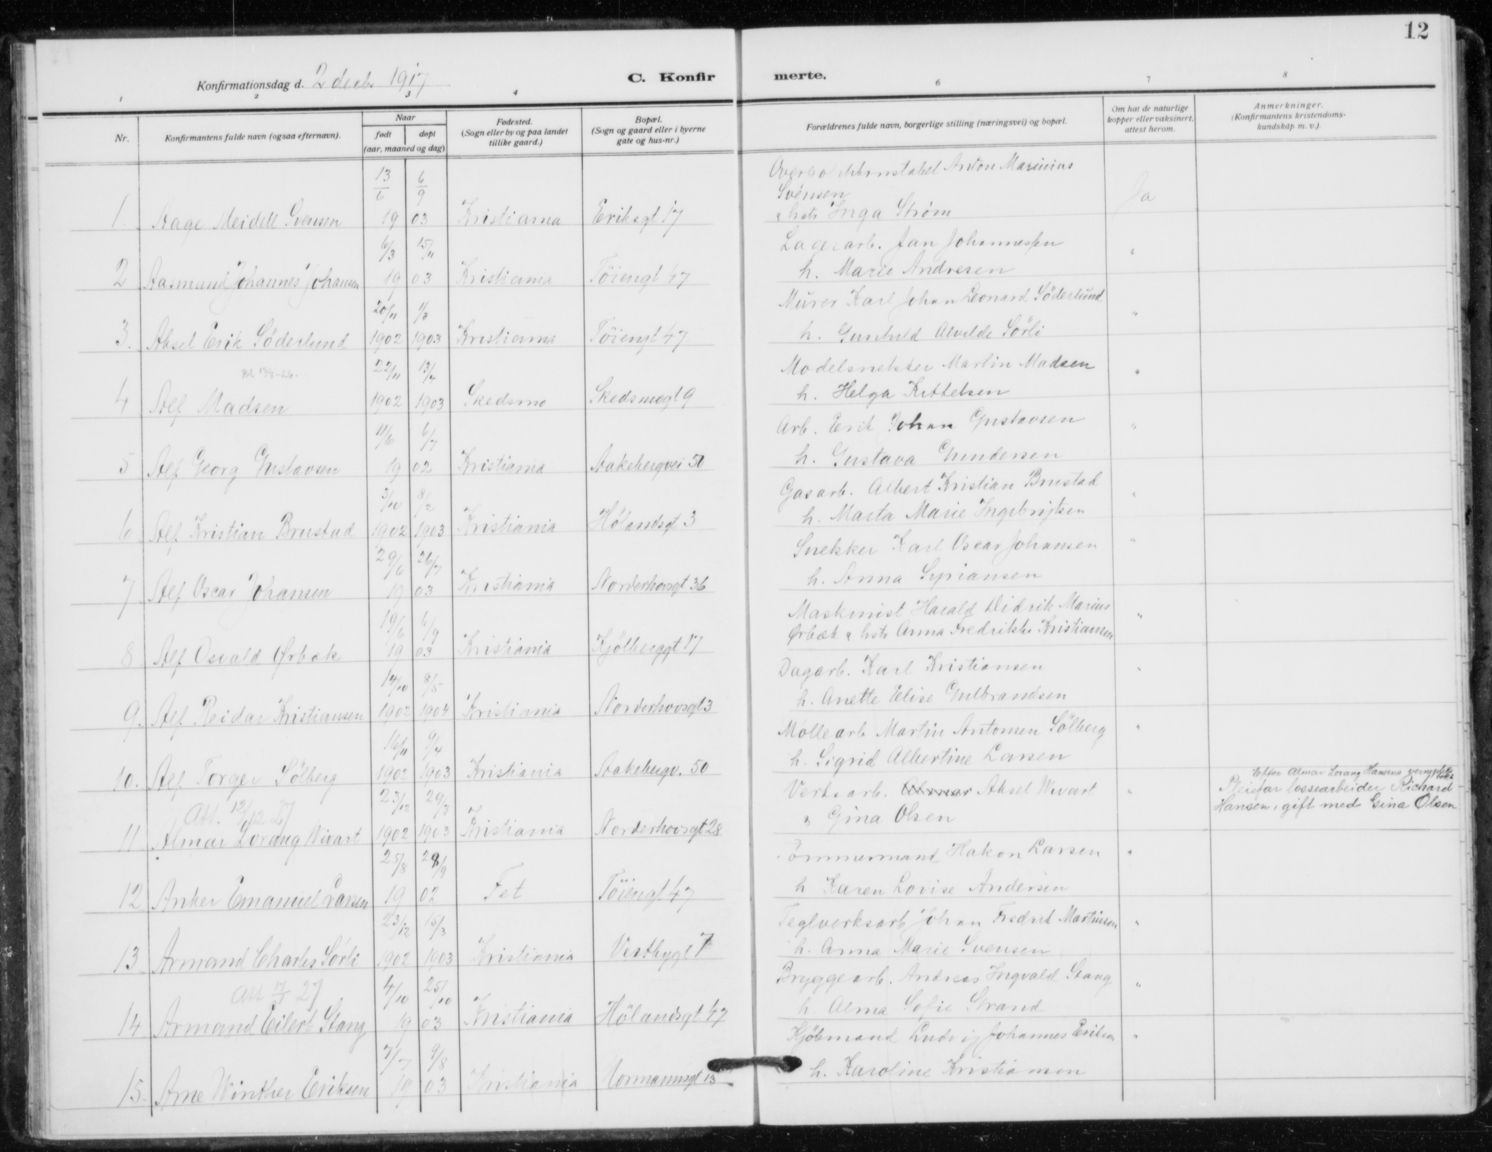 12
Konfirmationsdag d. 2 decbr 1917
C. Konfirmerte.
1 2 3 4 6 7 8
Nr.
Konfirmantens fulde navn (ogsaa efternavn).
Naar
født døpt
(aar, maaned og dag)
Fødested.
(Sogn eller by og paa landet
tillike gaard.)
Bopæl.
(Sogn og gaard eller i byerne
gate og hus-nr.)
Forældrenes fulde navn, borgerlige stilling (næringsvei) og bopæl.
Om hat de naturlige
kopper eller vaksinert,
attest herom.
Anmerkninger.
(Konfirmantens kristendoms-
kundskap m. v.).
13/6 6/9 Anton Marinius
Svensen
1. Aage Meidell Svensen 19 03 Kristiania Eriksgt 17 & hstr Inga Strøm Ja
6/3 15/11 Lagerarb. Jan Johannessen "
2 Aasmund Johannes Johansen 19 03 Kristiania Töiengt 47 h. Marie Andresen
20/11 1/3 Murer Karl Johan Leonard Söderlund "
3. Aksel Erik Söderlund 1902 1903 Kristiania Töiengt 47 h. Gunhild Alvilde Sørli
22/11 13/4 Modelsnekker Martin Madsen "
4 Alf Madsen 1902 1903 Skedsmo Skedsmogt 9 h. Helga Kittelsen
11/6 6/7 Arb. Erik Johan Gustavsen "
5 Alf Georg Gustavsen 19 02 Kristiania Aakebergvei 50 h. Gustava Gundersen
3/10 8/2 Gasarb. Albert Kristian Brustad "
6 Alf Kristian Brustad 1902 1903 Kristiania Hølandsgt 3 h. Marta Marie Ingebrigtsen
29/6 26/7 Snekker Karl Oscar Johansen "
7 Alf Oscar Johansen 19 03 Kristiania Norderhovsgt 36 h. Anna Syriansen
19/6 6/9 Maskinist Harald Didrik Marius "
8 Alf Osvald Ørbæk 19 03 Kristiania Kjølberggt 17 Ørbæk & hstr Anna Fredrikke Kristiansen
8/5 Dagarb. Karl Kristiansen "
9 Alf Reidar Kristiansen 1902 1904 Kristiania Norderhovsgt 3 h. Anette Elise Gulbrandsen
16/11 9/4 Møllearb Martin Antonsen Sölberg "
10. Alf Torger Sölberg 1902 1903 Kristiania Aakebergv. 50 h. Sigrid Albertine Larsen
Att. 12/12 27 23/12 29/3 Verksarb. Aksel Wivart " Efter Almar Lorang Hansens
Pleiefar lossearbeider Richard
11 Almar Lorang Wivart 1902 1903 Kristiania Norderhovsgt 28 " Gina Olsen Hansen, gift med Gina Olsen
25/8 Tømmermand Hakon Larsen "
12 Anker Emanuel Larsen 19 02 Fet Töiengt 47 h Karen Lovise Andersen
23/12 15/3 Teglverksarb Johan Fredrik Martinsen "
13 Armand Charles Sørli 1902 1903 Kristiania Vestbygt 7 h. Anna Marie Svensen
27 4/10 25/10 Bryggearb. Andreas Ingvald Stang "
14 Armand Eilert Stang 19 03 Kristiania Hølandsgt 47 h. Alma Sofie Strand
7/7 9/8 Kjøbmand Ludvig Johannes Eriksen "
15 Arne Winther Eriksen 19 03 Kristiania Normannsgt 13 h. Karoline Kristiansen